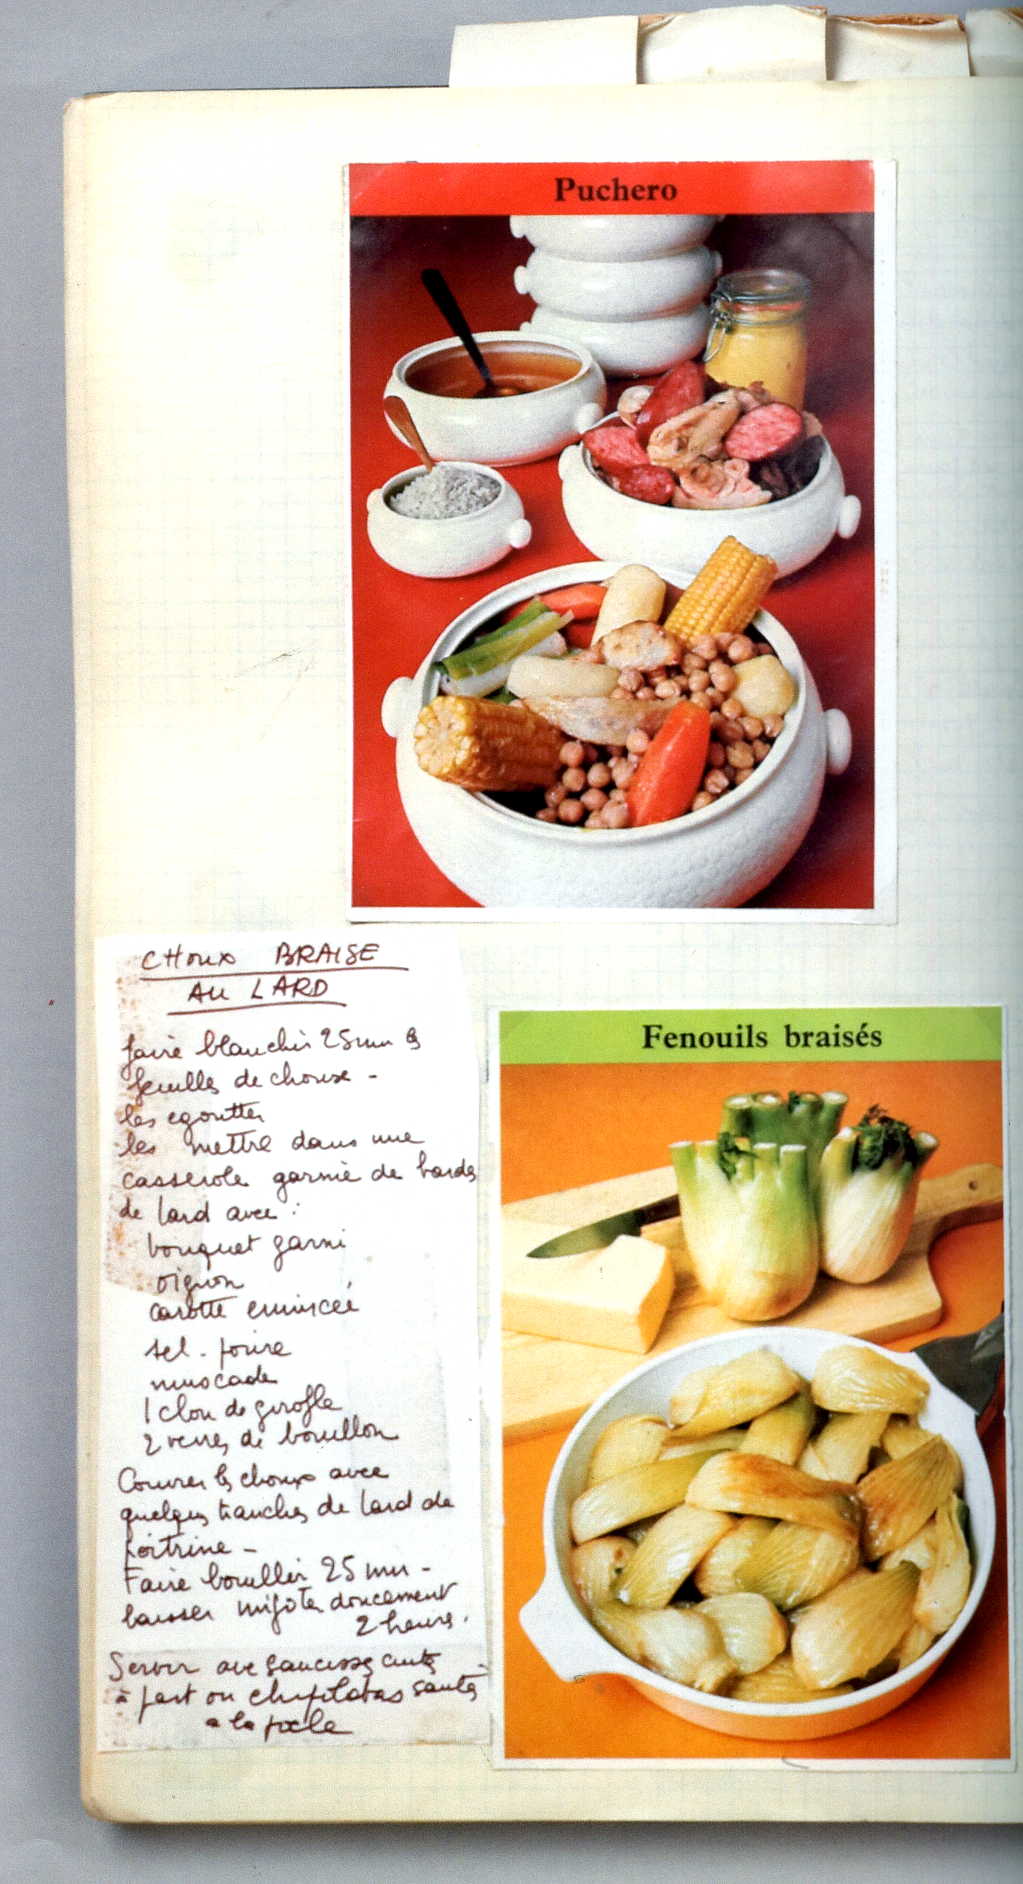 Puchero
CHOUX BRAISE
AU LARD
faire blanchir 25 mn les
feuilles de choux -
les egoutter
les mettre dans une
casserole garnie de bardes
de lard avec :
bouquet garni
oignon
carotte emincée
sel - poivre
muscade
1 clou de girofle
2 verres de bouillon
Couvrer les choux avec
quelques tranches de lard de
poitrine -
Faire bouillir 25 mn -
laisser mijoter doucement
2 heures.
Servir avec saucisses cuites
à part ou chipilatas sautés
a la poele
Fenouils braisés